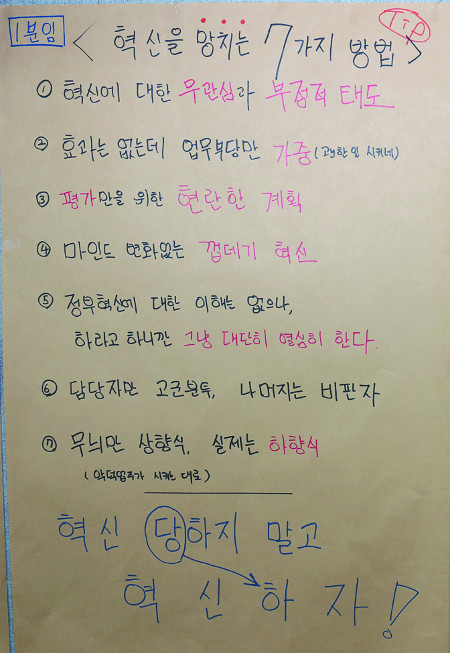 1분임
TIP
< 혁신을 망치는 7가지 방법 >
① 혁신에 대한 무관심과 부정적 태도
② 효과는 없는데 업무부담만 가중 (괜한 일 시키네)
③ 평가만을 위한 현란한 계획
④ 마인드 변화없는 껍데기 혁신
⑤ 정부혁신에 대한 이해는 없으나,
하라고 하니깐 그냥 대단히 열심히 한다.
⑥ 담당자만 고군분투, 나머지는 비판자
⑦ 무늬만 상향식, 실제는 하향식
(악덕업주가 시키는 대로)
혁신 당하지 말고
혁신하자!